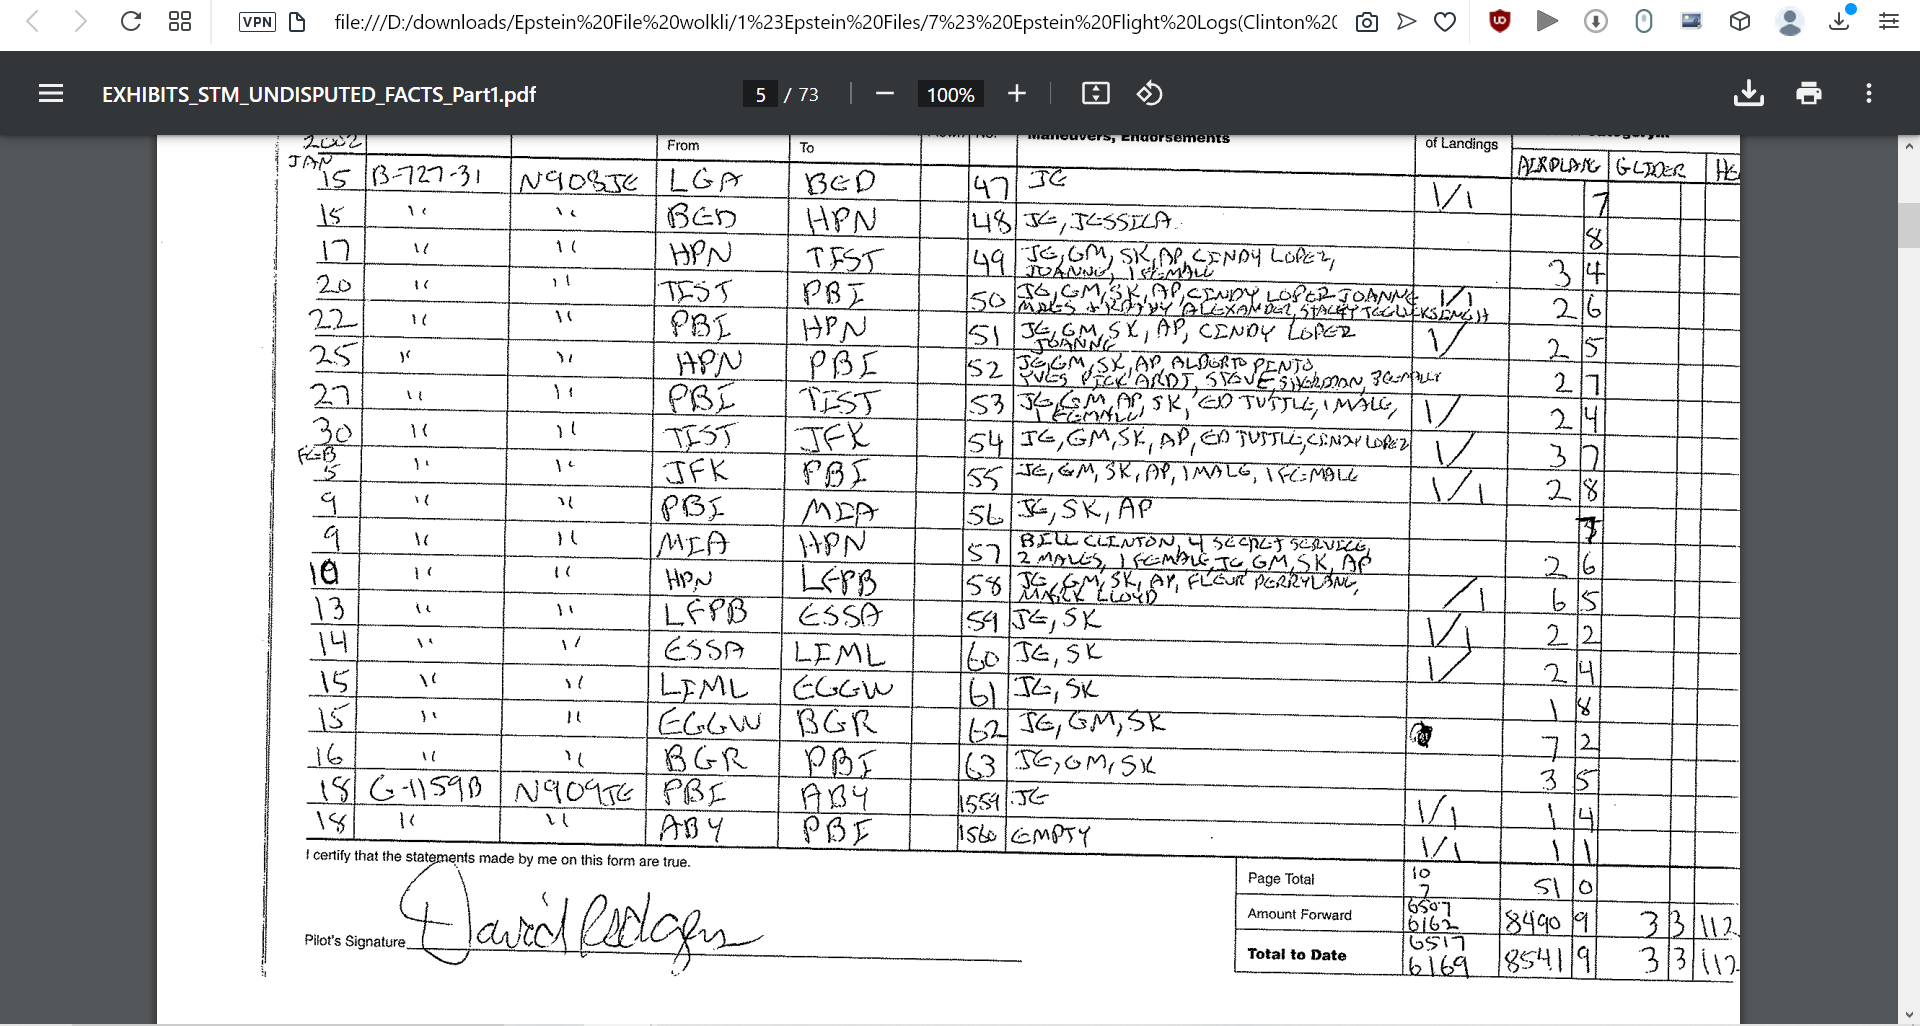 VPN file:///D:/downloads/Epstein%20File%20wolkli/1%23Epstein%20Files/7%23%20Epstein%20Flight%20Logs(Clinton%20
EXHIBITS_STM_UNDISPUTED_FACTS_Part1.pdf 5 / 73 100%
2002 From To Maneuvers, Endorsements of Landings
JAN AIRPLANE GLIDER
15 B-727-31 N908JE LGA BED 47 JE 1/1 7
15 " " BED HPN 48 JE, JESSICA 8
17 " " HPN TIST 49 JE, GM, SK, AP, CINDY LOPEZ, 3 4
JOANNE, 1 FEMALE
20 " " TIST PBI 50 JE, GM, SK, AP, CINDY LOPEZ JOANNE 1/1 2 6
ALEXANDER,
22 " " PBI HPN 51 JE, GM, SK, AP, CINDY LOPEZ 1/ 2 5
JOANNE
25 " " HPN PBI 52 JE, GM, SK, AP ALBERTO PINTO, 2 7
YVES PICKARDT, STEVE 3 FEMALE
27 " " PBI TIST 53 JE, GM, AP, SK, ED TUTTLE, 1 MALE, 1/ 2 4
1 FEMALE
30 " " TIST JFK 54 JE, GM, SK, AP, ED TUTTLE, CINDY LOPEZ 1/ 3 7
FEB
5 " " JFK PBI 55 JE, GM, SK, AP, 1 MALE, 1 FEMALE 1/1 2 8
9 " " PBI MIA 56 JE, SK, AP
9 " " MIA HPN 57 BILL CLINTON, 4 SECRET SERVICE, 2 6
2 MALES, 1 FEMALE, JE, GM, SK, AP
10 " " HPN LFPB 58 JE, GM, SK, AP, FLEUR PERRYLANG, /1 6 5
MARK LLOYD
13 " " LFPB ESSA 59 JE, SK 1/1 2 2
14 " " ESSA LIML 60 JE, SK 1/ 2 4
15 " " LIML EGGW 61 JE, SK 1 8
15 " " EGGW BGR 62 JE, GM, SK 7 2
16 " " BGR PBI 63 JE, GM, SK 3 5
18 G-1159B N909JE PBI ABY 1559 JE 1/1 1 4
18 " " ABY PBI 1560 EMPTY 1/1 1 1
I certify that the statements made by me on this form are true.
Page Total 10 7 51 0
Amount Forward 6507 6162 8490 9 3 3 112
Pilot's Signature David Rodgers
Total to Date 6517 6169 8541 9 3 3 112